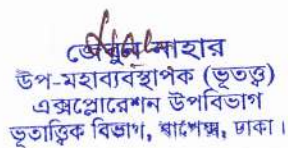 জেবুন নাহার
উপ-মহাব্যবস্থাপক (ভূতত্ত্ব)
এক্সপ্লোরেশন উপবিভাগ
ভূতাত্ত্বিক বিভাগ, বাপেক্স, ঢাকা।